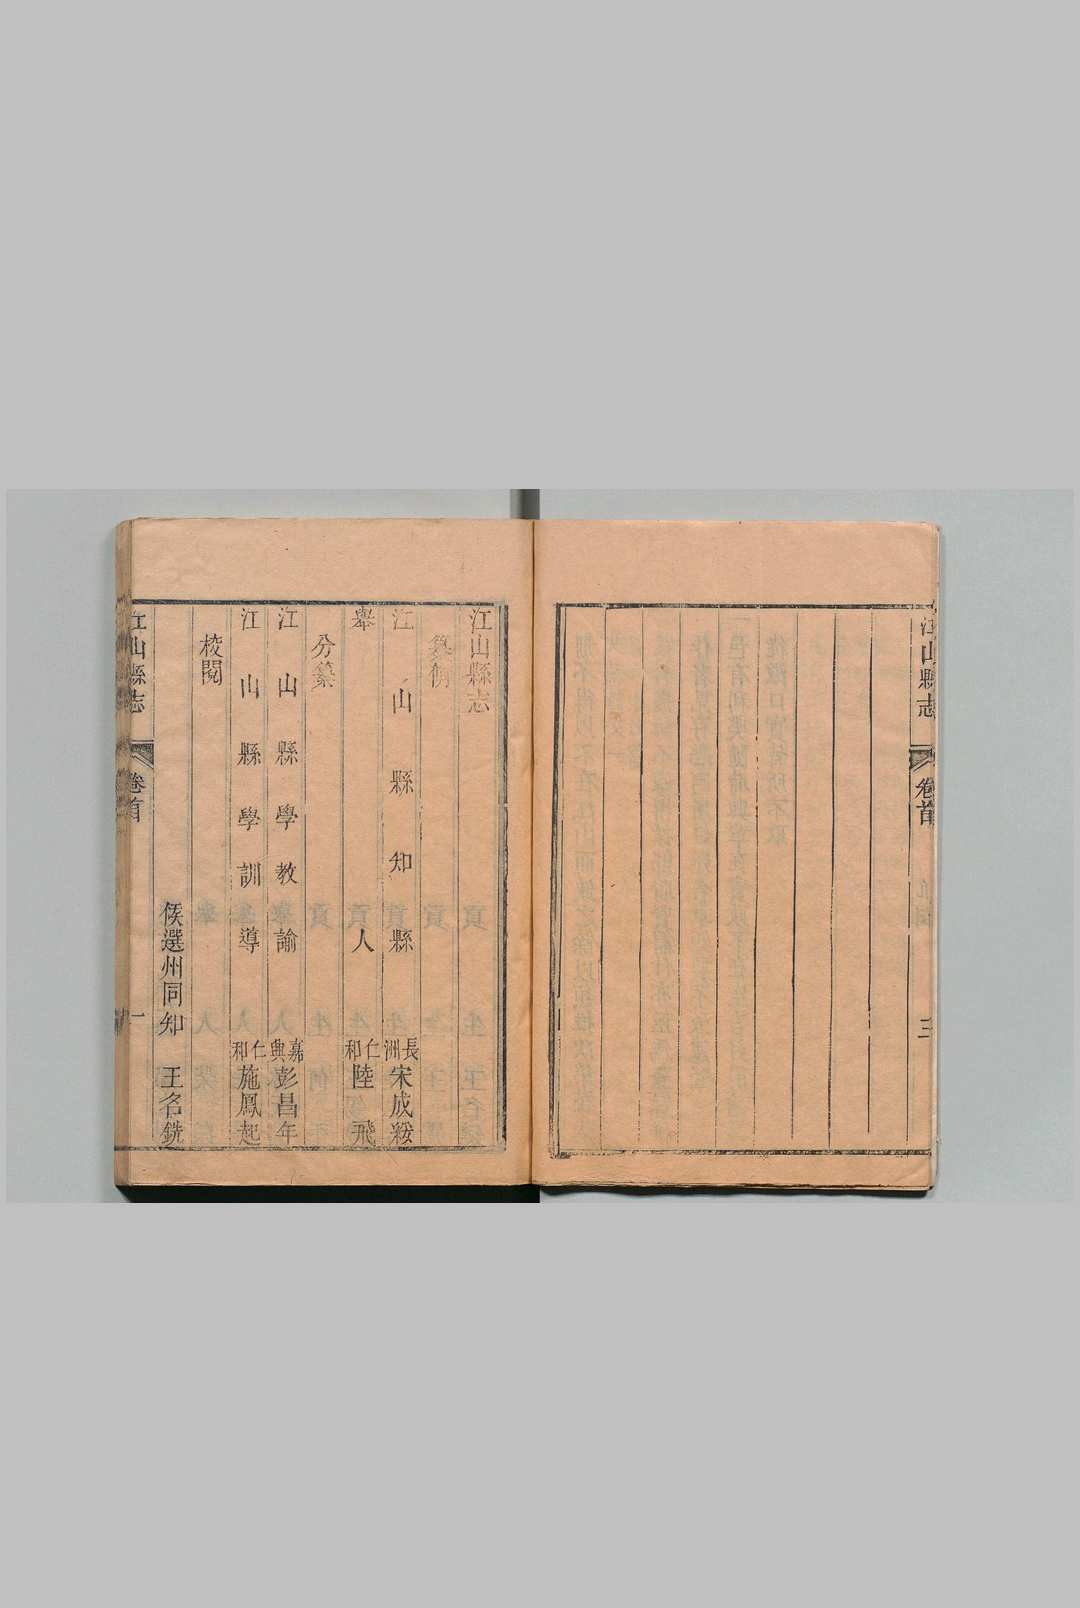 江山縣志
卷首
三
江山縣志
纂脩
江山縣知縣 長洲 宋成綏
舉人 仁和 陸飛
分纂
江山縣學教諭 嘉興 彭昌年
江山縣學訓導 仁和 施鳳起
校閱
候選州同知 王名銑
江山縣志
卷首
一